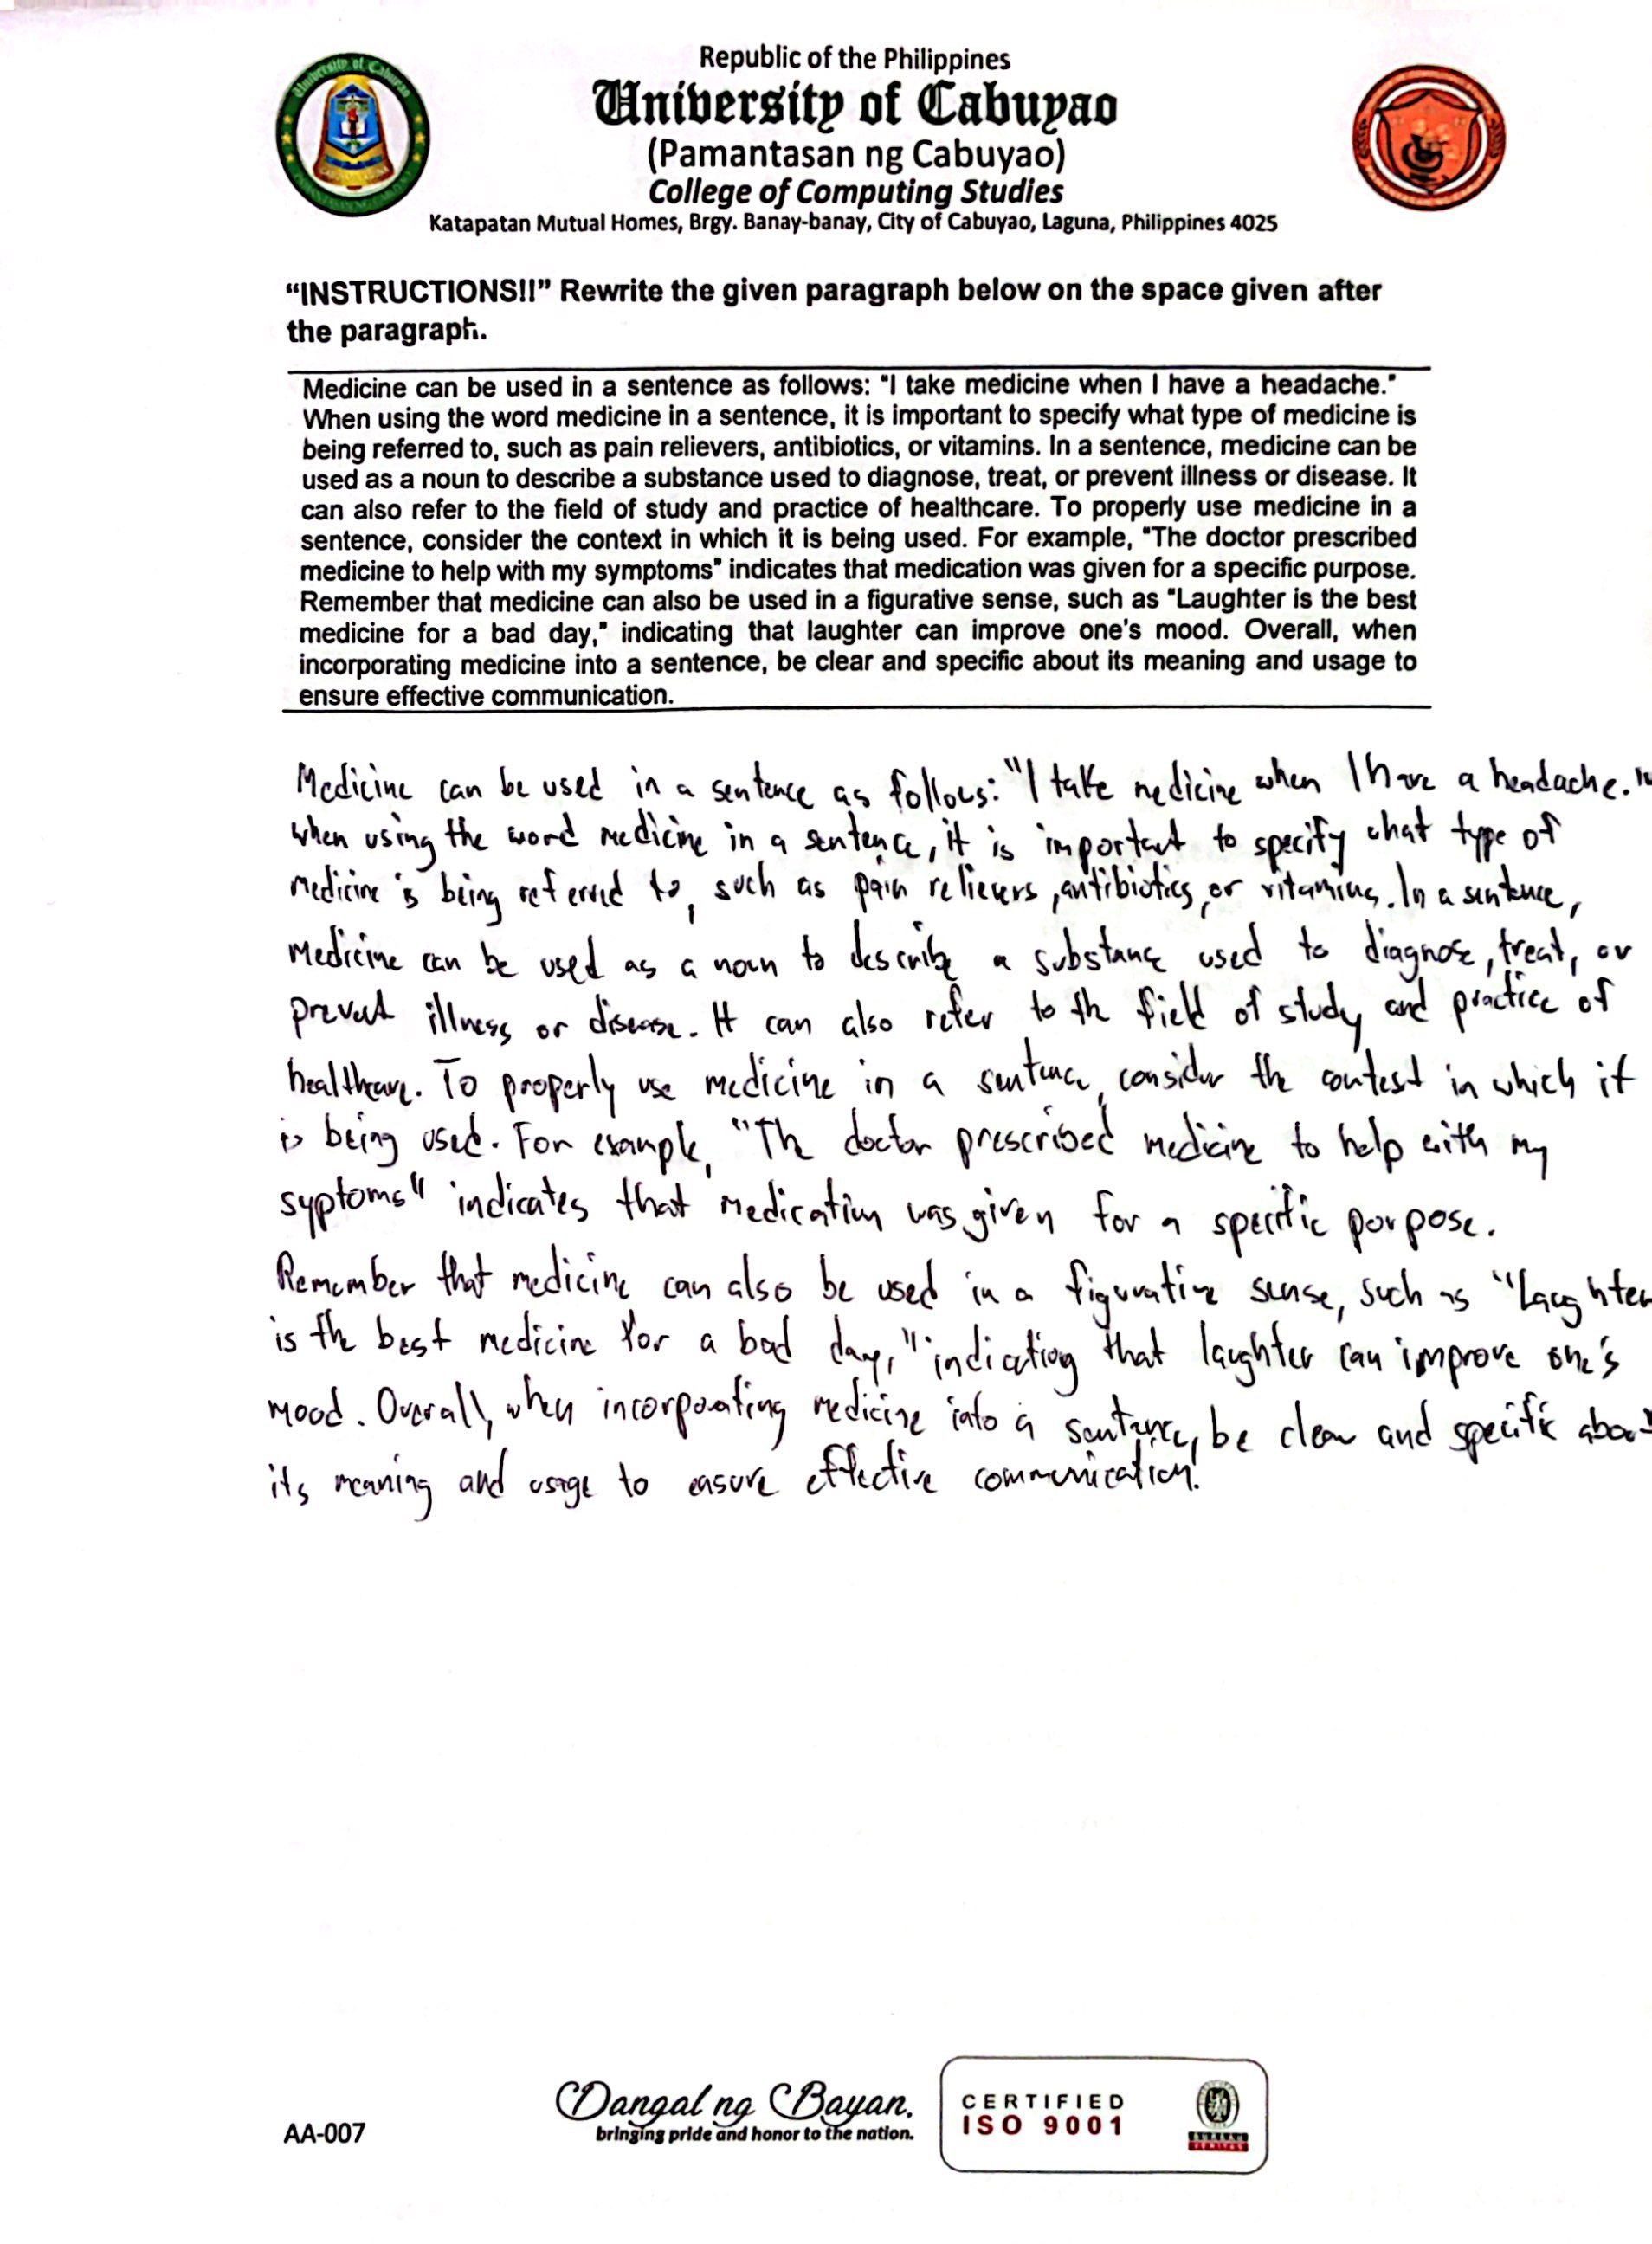 Republic of the Philippines
University of Cabuyao
(Pamantasan ng Cabuyao)
College of Computing Studies
Katapatan Mutual Homes, Brgy. Banay-banay, City of Cabuyao, Laguna, Philippines 4025
“INSTRUCTIONS!!” Rewrite the given paragraph below on the space given after
the paragraph.
Medicine can be used in a sentence as follows: "I take medicine when I have a headache."
When using the word medicine in a sentence, it is important to specify what type of medicine is
being referred to, such as pain relievers, antibiotics, or vitamins. In a sentence, medicine can be
used as a noun to describe a substance used to diagnose, treat, or prevent illness or disease. It
can also refer to the field of study and practice of healthcare. To properly use medicine in a
sentence, consider the context in which it is being used. For example, "The doctor prescribed
medicine to help with my symptoms" indicates that medication was given for a specific purpose.
Remember that medicine can also be used in a figurative sense, such as "Laughter is the best
medicine for a bad day," indicating that laughter can improve one's mood. Overall, when
incorporating medicine into a sentence, be clear and specific about its meaning and usage to
ensure effective communication.
Medicine can be used in a sentence as follows: "I take medicine when I have a headache."
when using the word medicine in a sentence, it is important to specify what type of
medicine is being referred to, such as pain relievers, antibiotics, or vitamins. In a sentence,
medicine can be used as a noun to describe a substance used to diagnose, treat, or
prevent illness or disease. It can also refer to th field of study and practice of
healthcare. To properly use medicine in a sentence, consider the contest in which it
is being used. For example, "Th doctor prescribed medicine to help with my
syptoms" indicates that medication was given for a specific porpose.
Remember that medicine can also be used in a figurative sense, such as "Laughter
is the best medicine for a bad day," indicating that laughter can improve one's
mood. Overall, when incorporating medicine into a sentence, be clear and specific about
its meaning and usage to ensure effective communication.
AA-007
Dangal ng Bayan.
bringing pride and honor to the nation.
CERTIFIED
ISO 9001
BUREAU
VERITAS